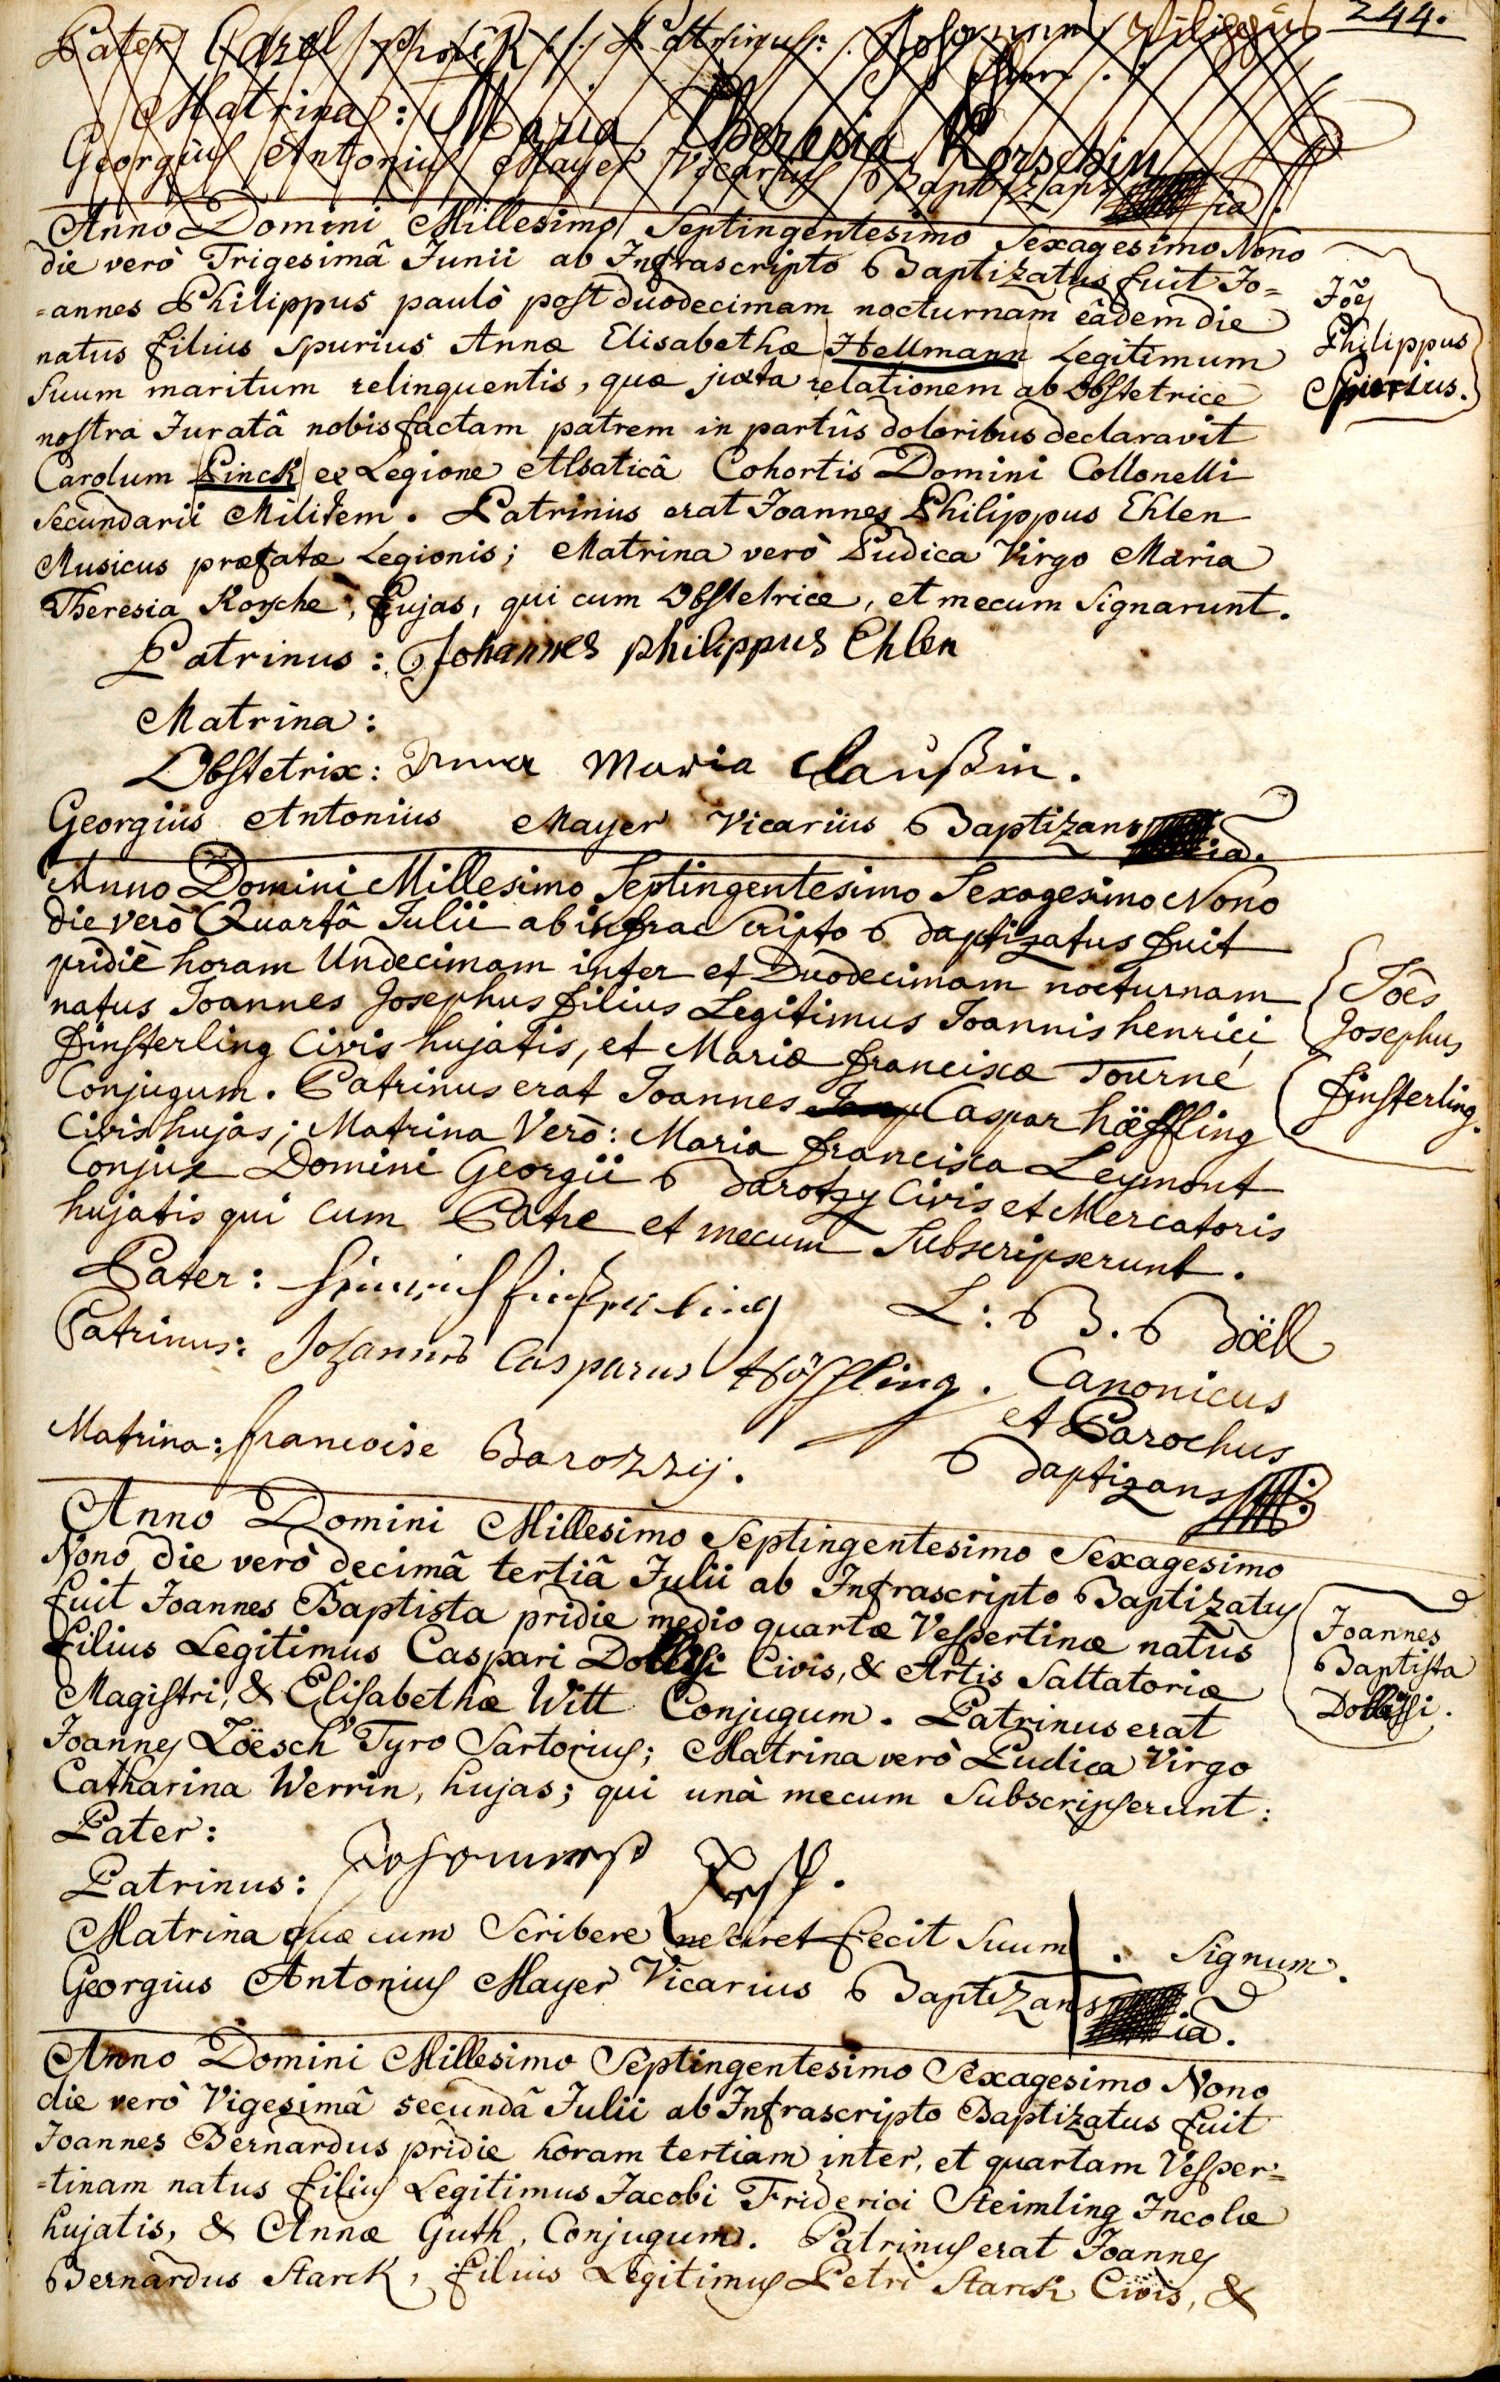 244.
Pater Carol Patrinus: Johannes Philippus
Ehlen.
Matrina: Maria Theresia Korschin
Georgius Antonius Mayer Vicarius Baptizans
Anno Domini Millesimo Septingentesimo Sexagesimo Nono
die verò Trigesimâ Junii ab Infrascripto Baptizatus fuit Jo=
=annes Philippus paulò post duodecimam nocturnam eâdem die
natus filius spurius Annæ Elisabethæ Hellmann Legitimum
Suum maritum relinquentis, quæ juxta relationem ab Obstetrice
nostra Juratâ nobis factam patrem in partûs doloribus declaravit
Carolum Finck ex Legione Alsaticâ Cohortis Domini Collonelli
Secundarii Militem. Patrinus erat Joannes Philippus Ehlen
Musicus præfatæ Legionis; Matrina verò Pudica Virgo Maria
Theresia Korsche, hujas, qui cum Obstetrice, et mecum Signarunt.
Joês
Philippus
Spurius.
Patrinus: Johannes philippus Ehlen
Matrina:
Obstetrix: Anna Maria Claußin.
Georgius Antonius Mayer Vicarius Baptizans
Anno Domini Millesimo Septingentesimo Sexagesimo Nono
die verò Quartâ Julii ab infrascripto baptizatus fuit
pridiè horam Undecimam inter et Duodecimam nocturnam
natus Joannes Josephus filius Legitimus Joannis henrici
finsterling Civis hujatis, et Mariæ franciscæ Tourné
Conjugum. Patrinus erat Joannes Caspar häffling
Civis hujas; Matrina Verò: Maria francisca Leymont
Conjux Domini Georgii Barotzy Civis et Mercatoris
hujatis qui cum Patre et mecum Subscripserunt.
Joês
Josephus
finsterling.
Pater: Heinrich finsterling
Patrinus: Johannes Casparus Höffling.
Matrina: francoise Barozzij.
L: B. Böell
Canonicus
et Parochus
baptizans
Anno Domini Millesimo Septingentesimo Sexagesimo
Nono die verò decimâ tertiâ Julii ab Infrascripto Baptizatus
fuit Joannes Baptista pridie medio quartæ Vespertinæ natus
filius Legitimus Caspari Civis, & Artis Saltatoriæ
Magistri, & Elisabethæ Witt Conjugum. Patrinus erat
Joannes Zöesch Tyro Sartorius; Matrina verò Pudica Virgo
Catharina Werrin, hujas; qui unà mecum Subscripserunt:
Joannes
Baptista
Pater:
Patrinus: Johannes
Matrina quæ cum Scribere nesciret fecit Suum + Signum.
Georgius Antonius Mayer Vicarius Baptizans
Anno Domini Millesimo Septingentesimo Sexagesimo Nono
die verò Vigesimâ secundâ Julii ab Infrascripto Baptizatus fuit
Joannes Bernardus pridie horam tertiam inter, et quartam Vesper=
=tinam natus filius Legitimus Jacobi Friderici Steimling Incolæ
hujatis, & Annæ Guth, Conjugum. Patrinus erat Joannes
Bernardus Starck, filius Legitimus Petri Starck Civis, &